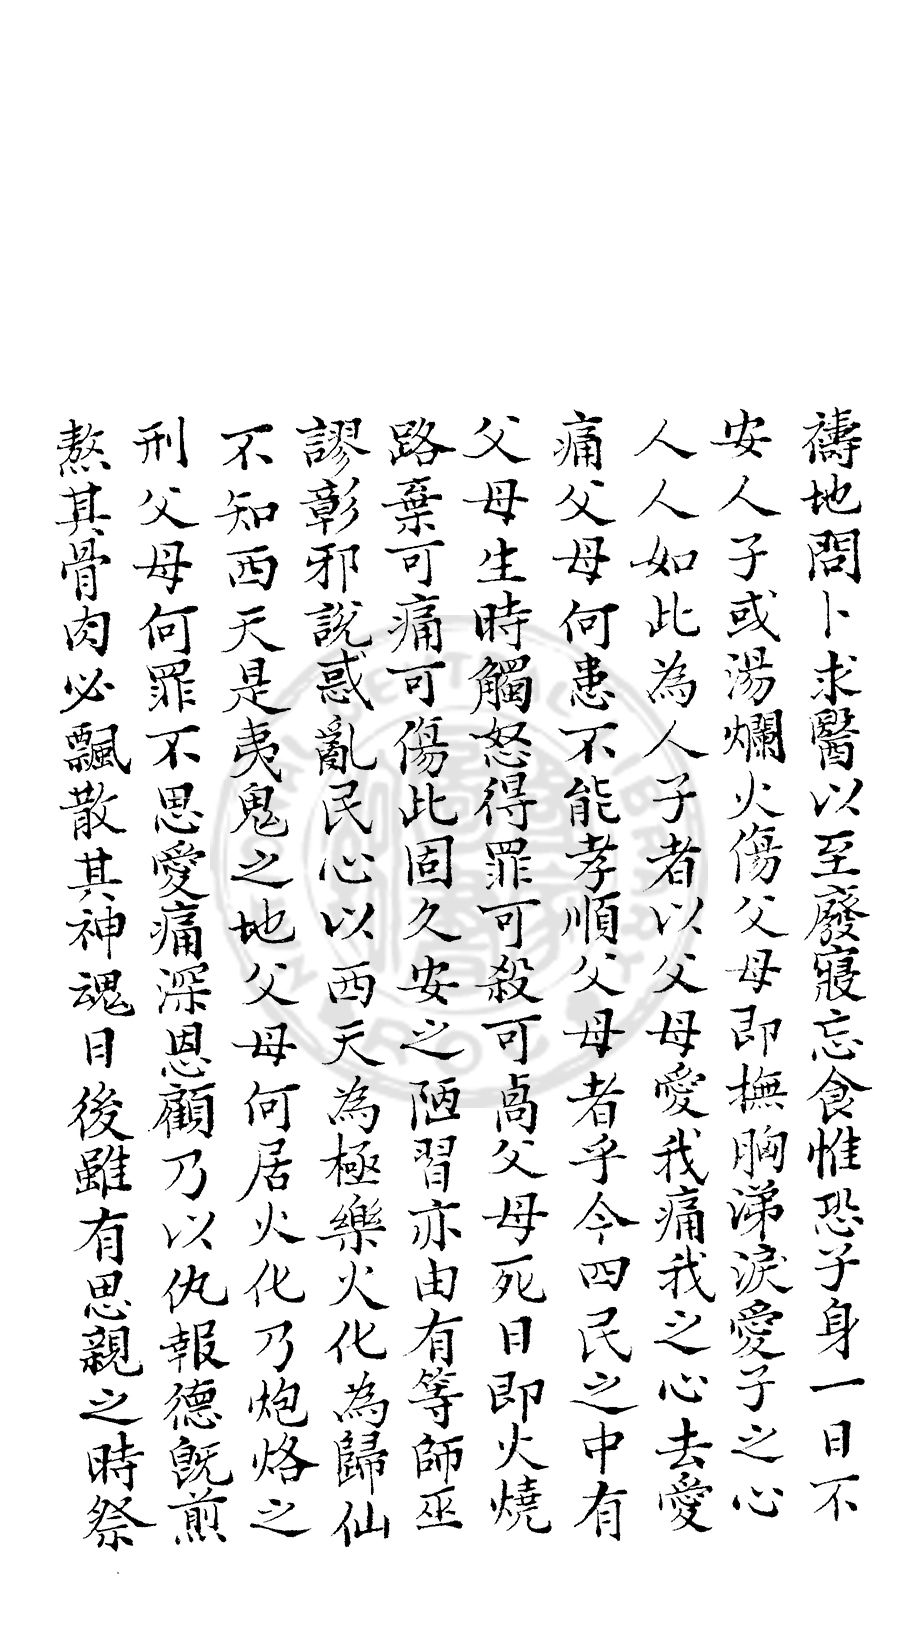 禱地問卜求醫以至廢寢忘食惟恐子身一日不
安人子或湯爛火傷父母即撫胸涕淚愛子之心
人人如此為人子者以父母愛我痛我之心去愛
痛父母何患不能孝順父母者乎今四民之中有
父母生時觸怒得罪可殺可咼父母死日即火燒
路棄可痛可傷此固久安之陋習亦由有等師巫
謬彰邪說惑亂民心以西天為極樂火化為歸仙
不知西天是夷鬼之地父母何居火化乃炮烙之
刑父母何罪不思愛痛深恩顧乃以仇報德旣煎
熬其骨肉必飄散其神魂日後雖有思親之時祭